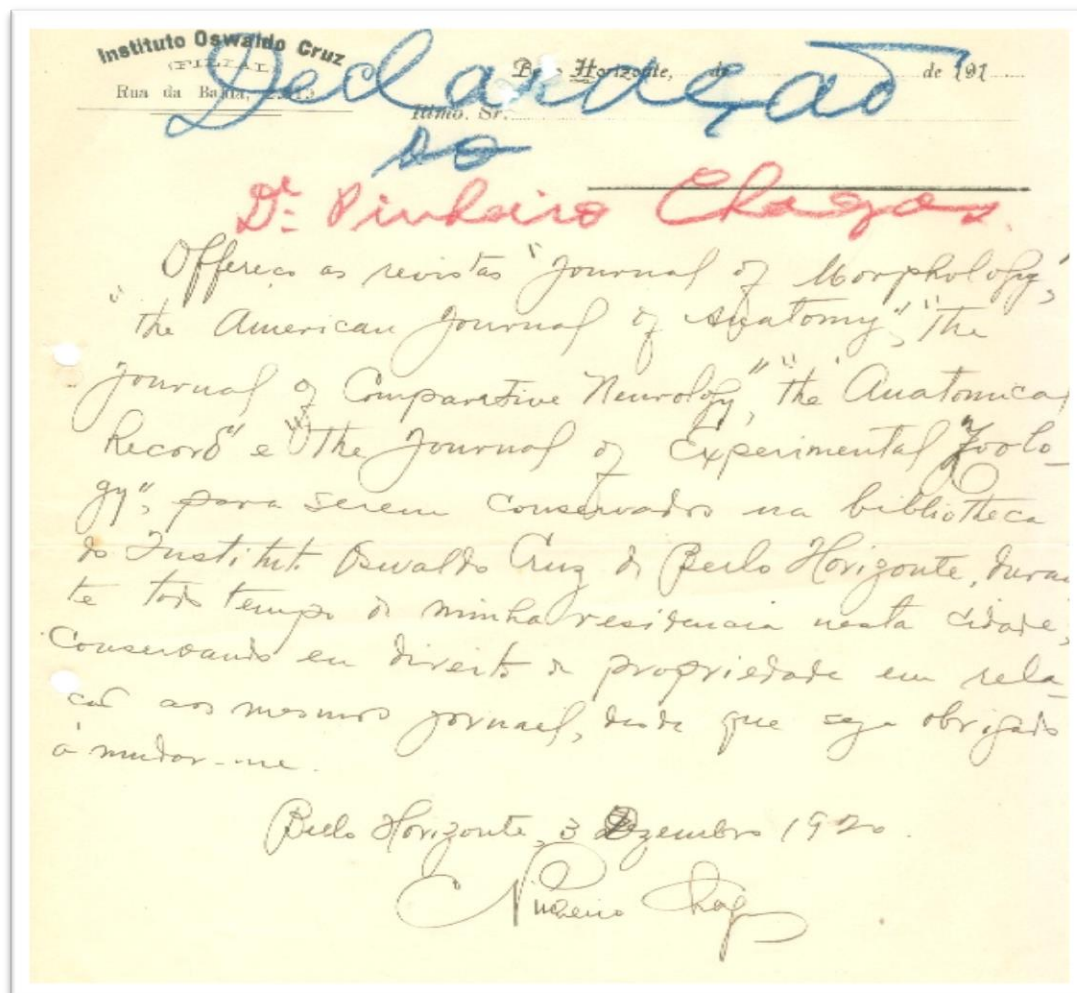 Instituto Oswaldo Cruz
(FILIAL)
Bello Horizonte, de de 191
Rua da Bahia,
Illmo. Sr.
Declaração
do
Dr. Pinheiro Chagas.
Offereço as revistas "Journal of Morphology",
"the American Journal of Anatomy", "The
Journal of Comparative Neurology", "the Anatomical
Record" e "The Journal of Experimental Zoolo-
gy", para serem conservados na bibliotheca
do Instituto Oswaldo Cruz de Bello Horizonte, duran
te todo tempo de minha residencia nesta cidade,
conservando eu direito de propriedade em rela-
ção aos mesmos jornaes, desde que seja obrigado
á mudar-me.
Bello Horizonte, 3 Dezembro 1920.
C Pinheiro Chagas